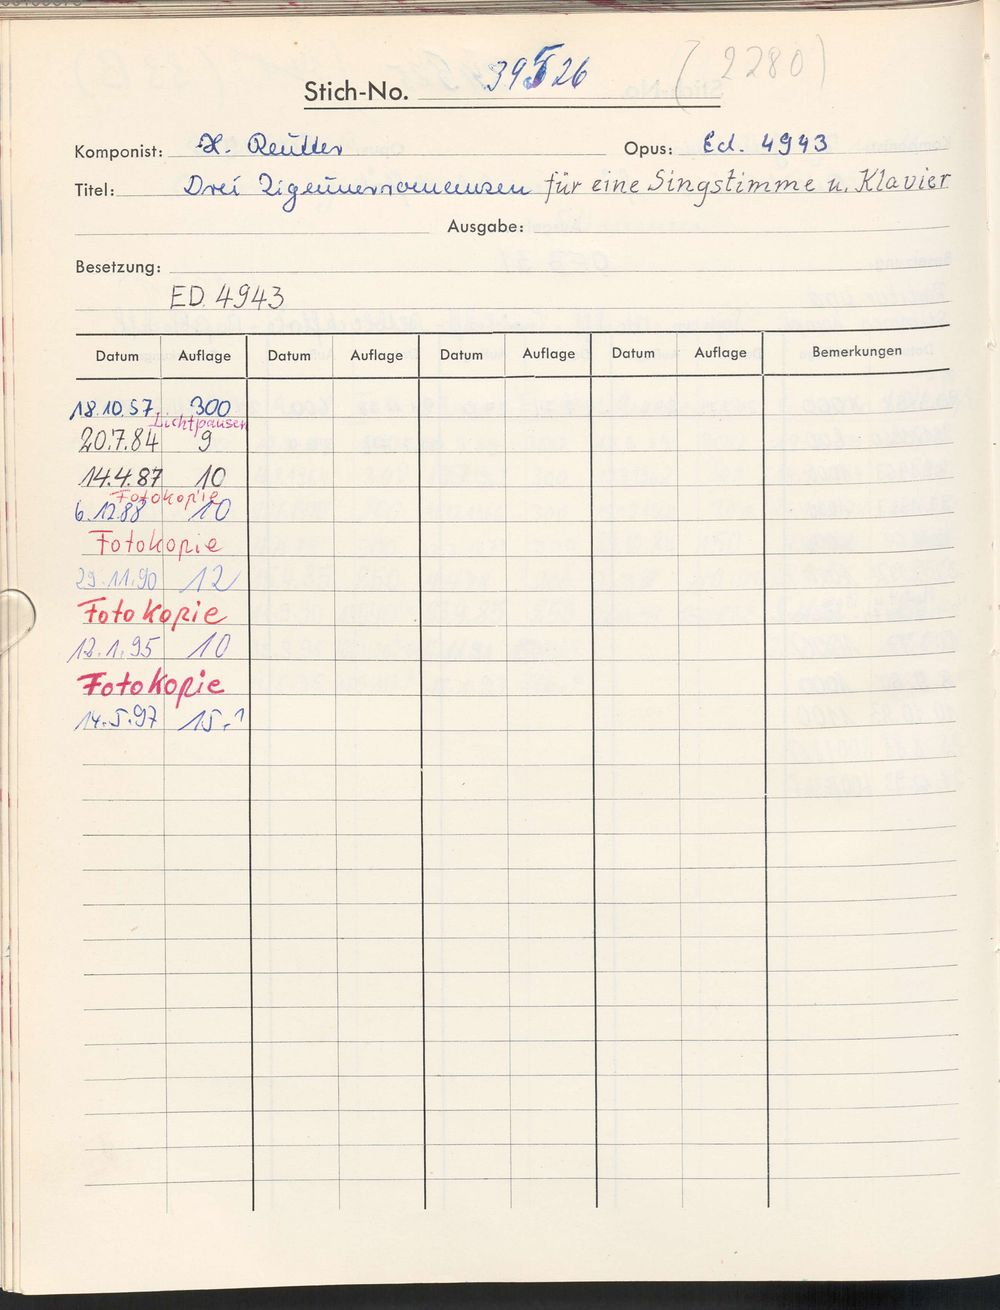 Stich-No. 39526 (2280)
Komponist: H. Reutter Opus: Ed. 4943
Titel: Drei Zigeunerromanzen für eine Singstimme u. Klavier
Ausgabe:
Besetzung:
ED. 4943
Datum Auflage Datum Auflage Datum Auflage Datum Auflage Bemerkungen
18.10.57. 300
Lichtpausen
20.7.84 9
14.4.87 10
Fotokopie
6.12.88 10
Fotokopie
29.11.90 12
Fotokopie
12.1.95 10
Fotokopie
14.5.97 15.